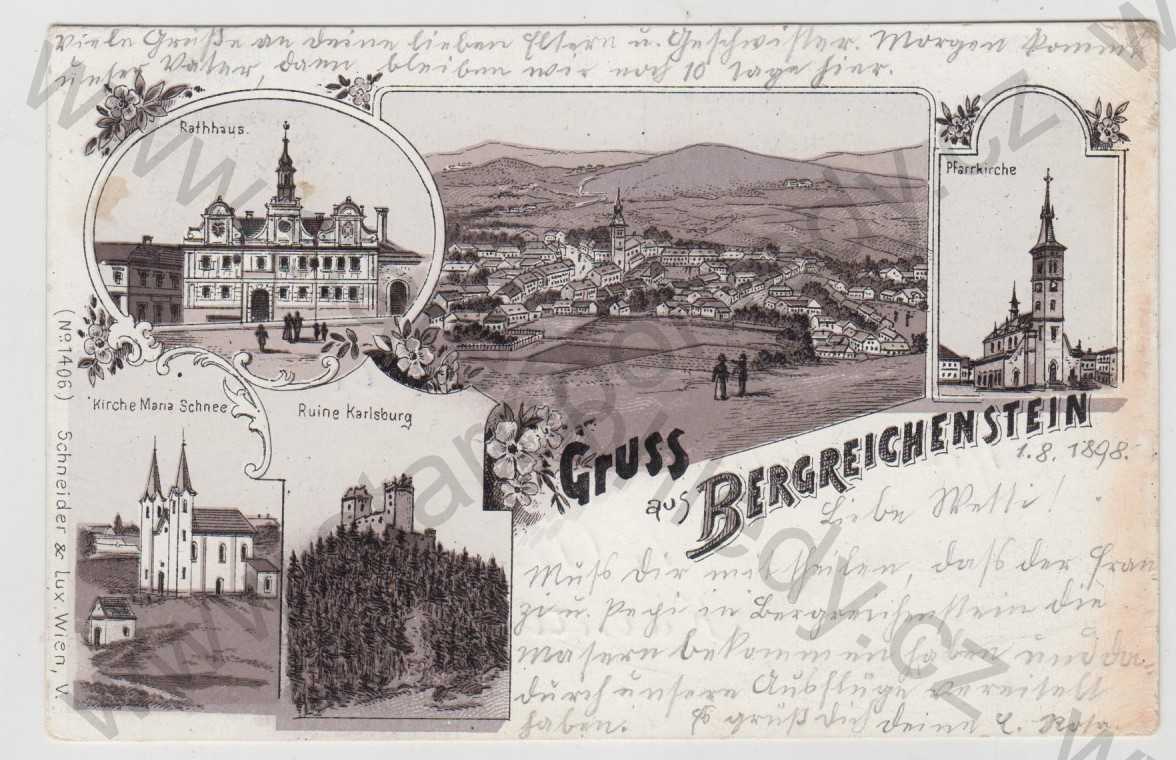 Viele Grüße an deine lieben Eltern u. Geschwister. Morgen kommt
unser Vater, dann bleiben wir noch 10 Tage hier.
Rathhaus.
Pfarrkirche
Kirche Maria Schnee
Ruine Karlsburg
Gruss
aus BERGREICHENSTEIN
1.8. 1898.
Liebe Wetti!
Muss dir mittheilen, dass der Fran-
zi u. Pepi in Bergreichenstein die
Masern bekommen haben und da-
durch unsere Ausflüge vereitelt
haben. Es grüßt dich deine L. Rosa.
(No. 1406) Schneider & Lux, Wien, V.